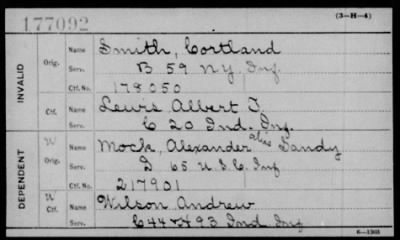 177092
(3-H-4)
INVALID
Orig.
Name Smith, Cortland
Serv. B 59 N.Y. Inf.
Ctf. No. 178050
Ctf.
Name Lewis Albert T.
Serv. C 20 Ind. Inf.
DEPENDENT
W
Orig.
Name Mock, Alexander alias Sandy
Serv. D 65 U.S.C. Inf
Ctf. No. 217901
W
Ctf.
Name Wilson Andrew
Serv. C 44 & H 93 Ind Inf
6-1303